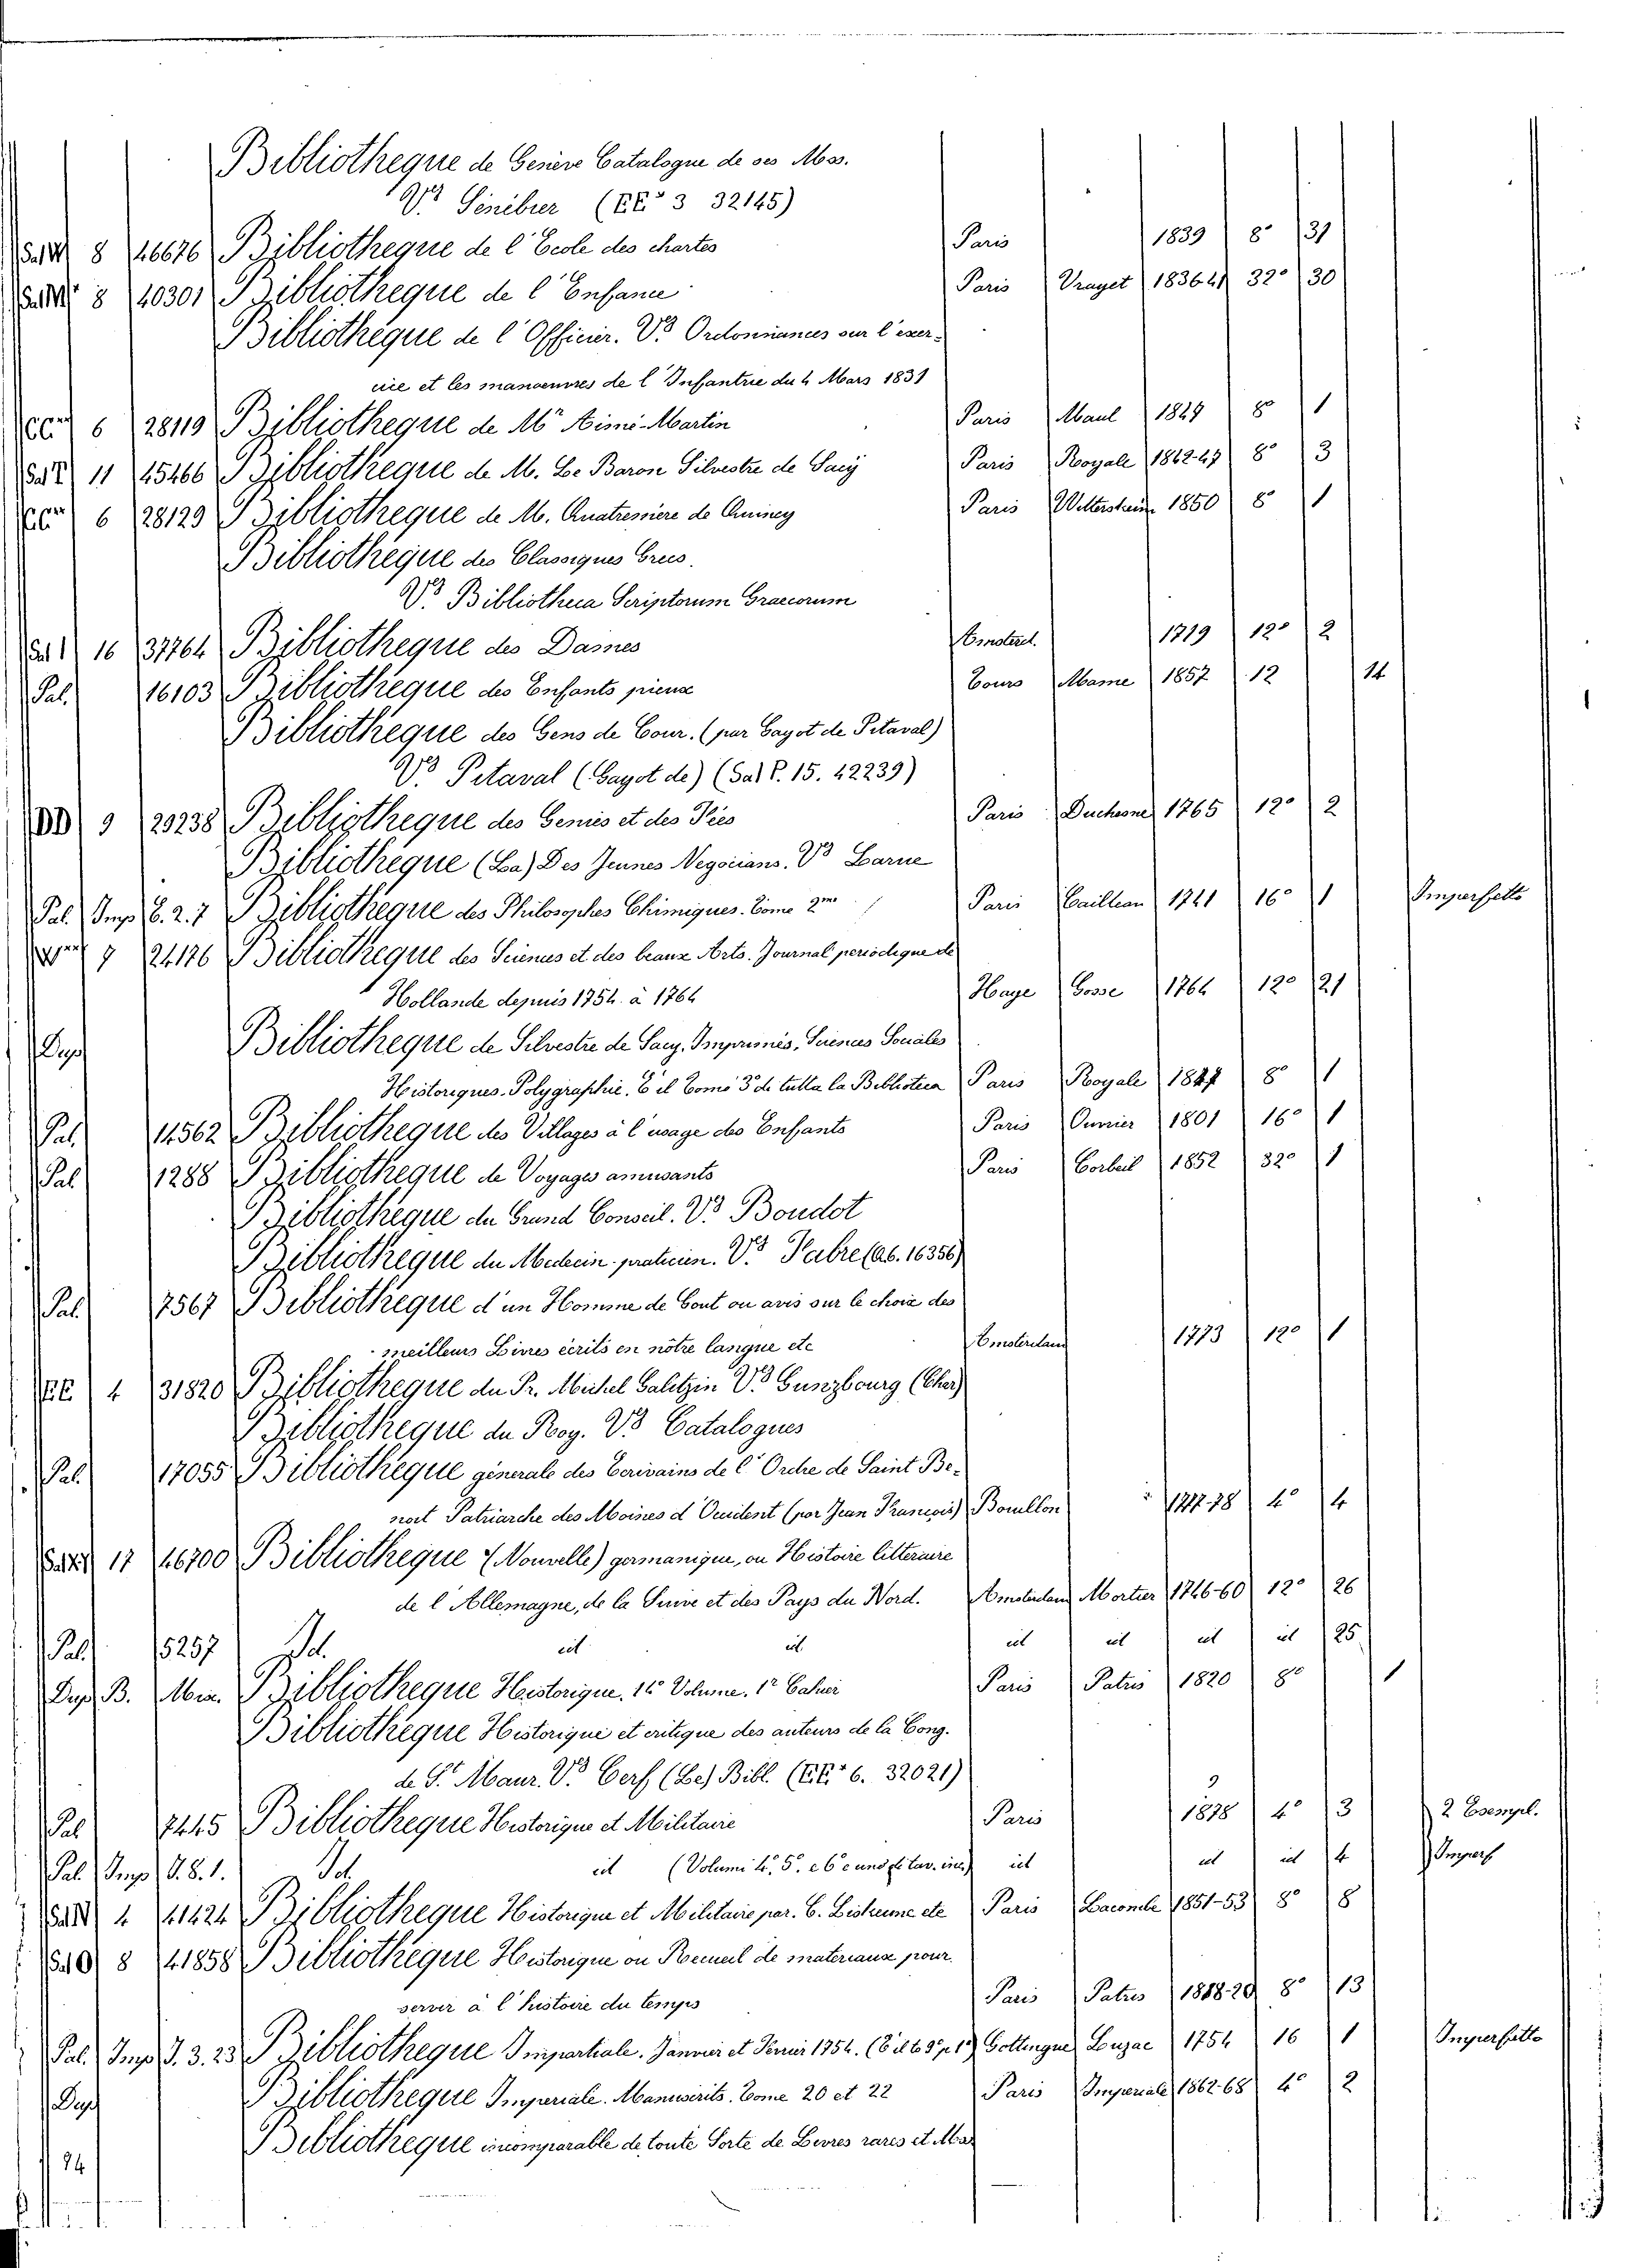 Bibliotheque de Genève Catalogue de ses Mss.
V.3 Sinibier (EE 3 32145)
8 46676 Bibliotheque de l'Ecole des chartes Paris 1839 8° 31
8 40301 Bibliotheque de l'Enfance Paris Vrayet 1836-41 32° 30
Bibliotheque de l'Officier. V.3 Ordonnances sur l'exer-
cice et les manœuvres de l'Infantrie du 4 Mars 1831
6 28119 Bibliotheque de Mr Aimé-Martin Paris Maul 1847 8° 1
11 45466 Bibliotheque de M. Le Baron Silvestre de Sacÿ Paris Royale 1842-47 8° 3
6 28129 Bibliotheque de M. Quatremère de Quincy Paris 1850 8° 1
Bibliotheque des Classiques Grecs.
V.3 Bibliotheca Scriptorum Graecorum
16 37764 Bibliotheque des Dames Amsterd. 1719 12° 2
Pal. 16103 Bibliotheque des Enfants pieux Tours Mame 1857 12 14
Bibliotheque des Gens de Cour. (par Gayot de Pitaval)
V.3 Pitaval (Gayot de) (Sal P. 15. 42239)
DD 9 29238 Bibliotheque des Genies et des Fées Paris Duchesne 1765 12° 2
Bibliotheque (La) Des Jeunes Negocians. V.3 Larue
Pal. Imp. C. 2. 7 Bibliotheque des Philosophes Chimiques. Tome 2me Paris Cailleau 1741 16° 1 Imperfetto
7 24176 Bibliotheque des Sciences et des beaux Arts. Journal periodique de
Hollande depuis 1754 à 1764 Haye Gosse 1764 12° 21
Dup. Bibliotheque de Silvestre de Sacy. Imprimés, Sciences Sociales
Historiques. Polygraphie. È il Tomo 3° de tutta la Biblioteca Paris Royale 1847 8° 1
Pal. 14562 Bibliotheque des Villages à l'usage des Enfants Paris 1801 16° 1
Pal. 1288 Bibliotheque de Voyages amusants Paris Corbeil 1852 32° 1
Bibliotheque du Grand Conseil. V.3 Boudot
Bibliotheque du Medecin-praticien. V.3 Fabre (ab. 16356)
Pal. 7567 Bibliotheque d'un Homme de Gout ou avis sur le choix des
meilleurs Livres écrits en nôtre langue etc Amsterdam 1773 12° 1
EE 4 31820 Bibliotheque du Pr. Michel Galitzin V.3 Gunzbourg (Cher)
Bibliotheque du Roy. V.3 Catalogues
Pal. 17055 Bibliotheque génerale des Ecrivains de l'Ordre de Saint Be-
noit Patriarche des Moines d'Occident (par Jean François) Bouillon 1777-78 4° 4
17 46700 Bibliotheque (Nouvelle) germanique, ou Histoire litteraire
de l'Allemagne, de la Suisse et des Pays du Nord. Amsterdam Mortier 1746-60 12° 26
Pal. 5257 Id. id id id id id id 25
Dup. B. Mis. Bibliotheque Historique. 14° Volume. 1r Cahier Paris Patris 1820 8° 1
Bibliotheque Historique et critique des auteurs de la Cong.
de St. Maur. V.3 Cerf (Le) Bibl. (EE 6. 32021)
Pal 7445 Bibliotheque Historique et Militaire Paris 1838 4° 3 2 Esempl.
Pal. Imp. A. 8. 1. Id. id (Volumi 4°, 5°. e 6° e uno di tav. inc) id id id 4 Imperf
4 41424 Bibliotheque Historique et Militaire par. C. Liskenne etc Paris Lacombe 1851-53 8° 8
8 41858 Bibliotheque Historique ou Recueil de materiaux pour
servir à l'histoire du temps Paris Patris 1818-20 8° 13
Pal. Imp. I. 3. 23 Bibliotheque Impartiale. Janvier et Fevrier 1754. Gottingue Luzac 1754 16 1 Imperfetto
Dup. Bibliotheque Imperiale. Manuscrits. Tome 20 et 22 Paris Imperiale 1862-68 4° 2
Bibliotheque incomparable de toute Sorte de Livres rares et Ma
94